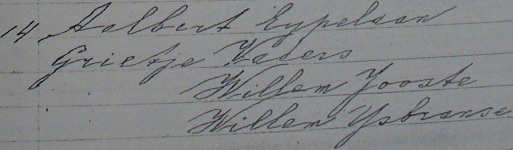 14 Aalbert Eypelson
Grietje Kasers
Willem Jooste
Willem Ysbranse